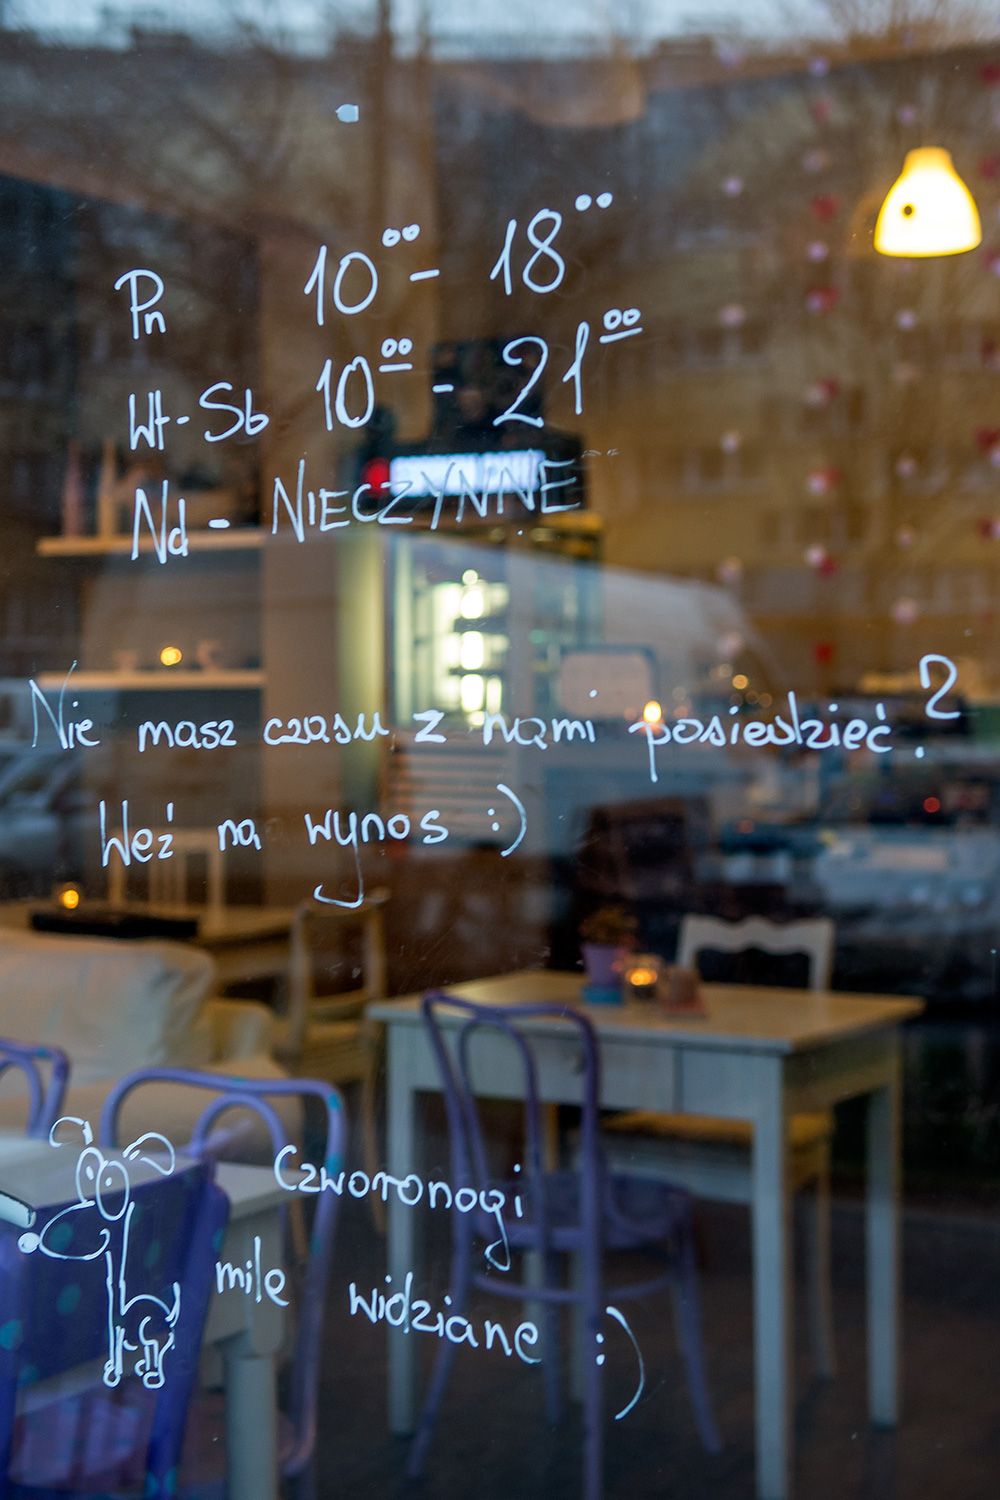 Pn 10⁰⁰ - 18⁰⁰
Wt-Sb 10⁰⁰ - 21⁰⁰
Nd - NIECZYNNE
Nie masz czasu z nami posiedzieć?
Weź na wynos :)
Czworonogi
mile widziane :)